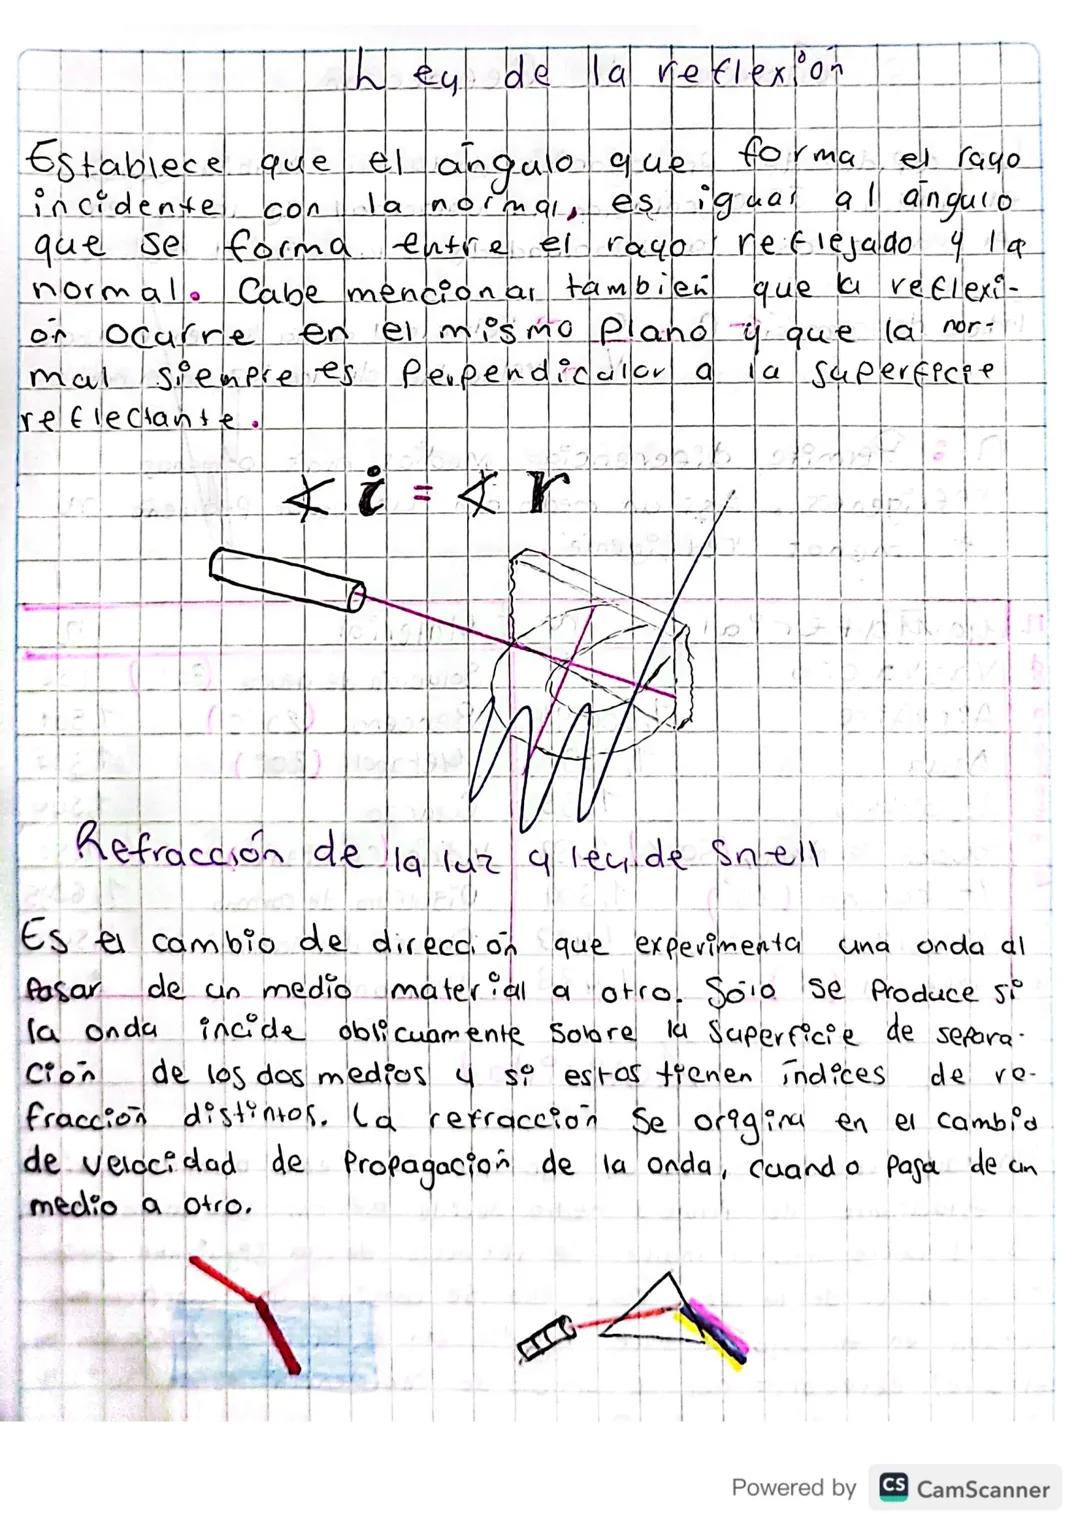 Ley de la reflexión
Establece que el ángulo que forma el rayo
incidente con la normal, es igual al ángulo
que se forma entre el rayo reflejado y la
normal. Cabe mencionar también que la reflexi-
ón ocurre en el mismo plano y que la nor-
mal siempre es perpendicular a la superficie
reflectante.
∢ i = ∢ r
Refracción de la luz y ley de Snell
Es el cambio de dirección que experimenta una onda al
pasar de un medio material a otro. Sólo se produce si
la onda incide oblicuamente sobre la superficie de separa-
ción de los dos medios y si estos tienen índices de re-
fracción distintos. La refracción se origina en el cambio
de velocidad de propagación de la onda, cuando pasa de un
medio a otro.
Powered by CS CamScanner